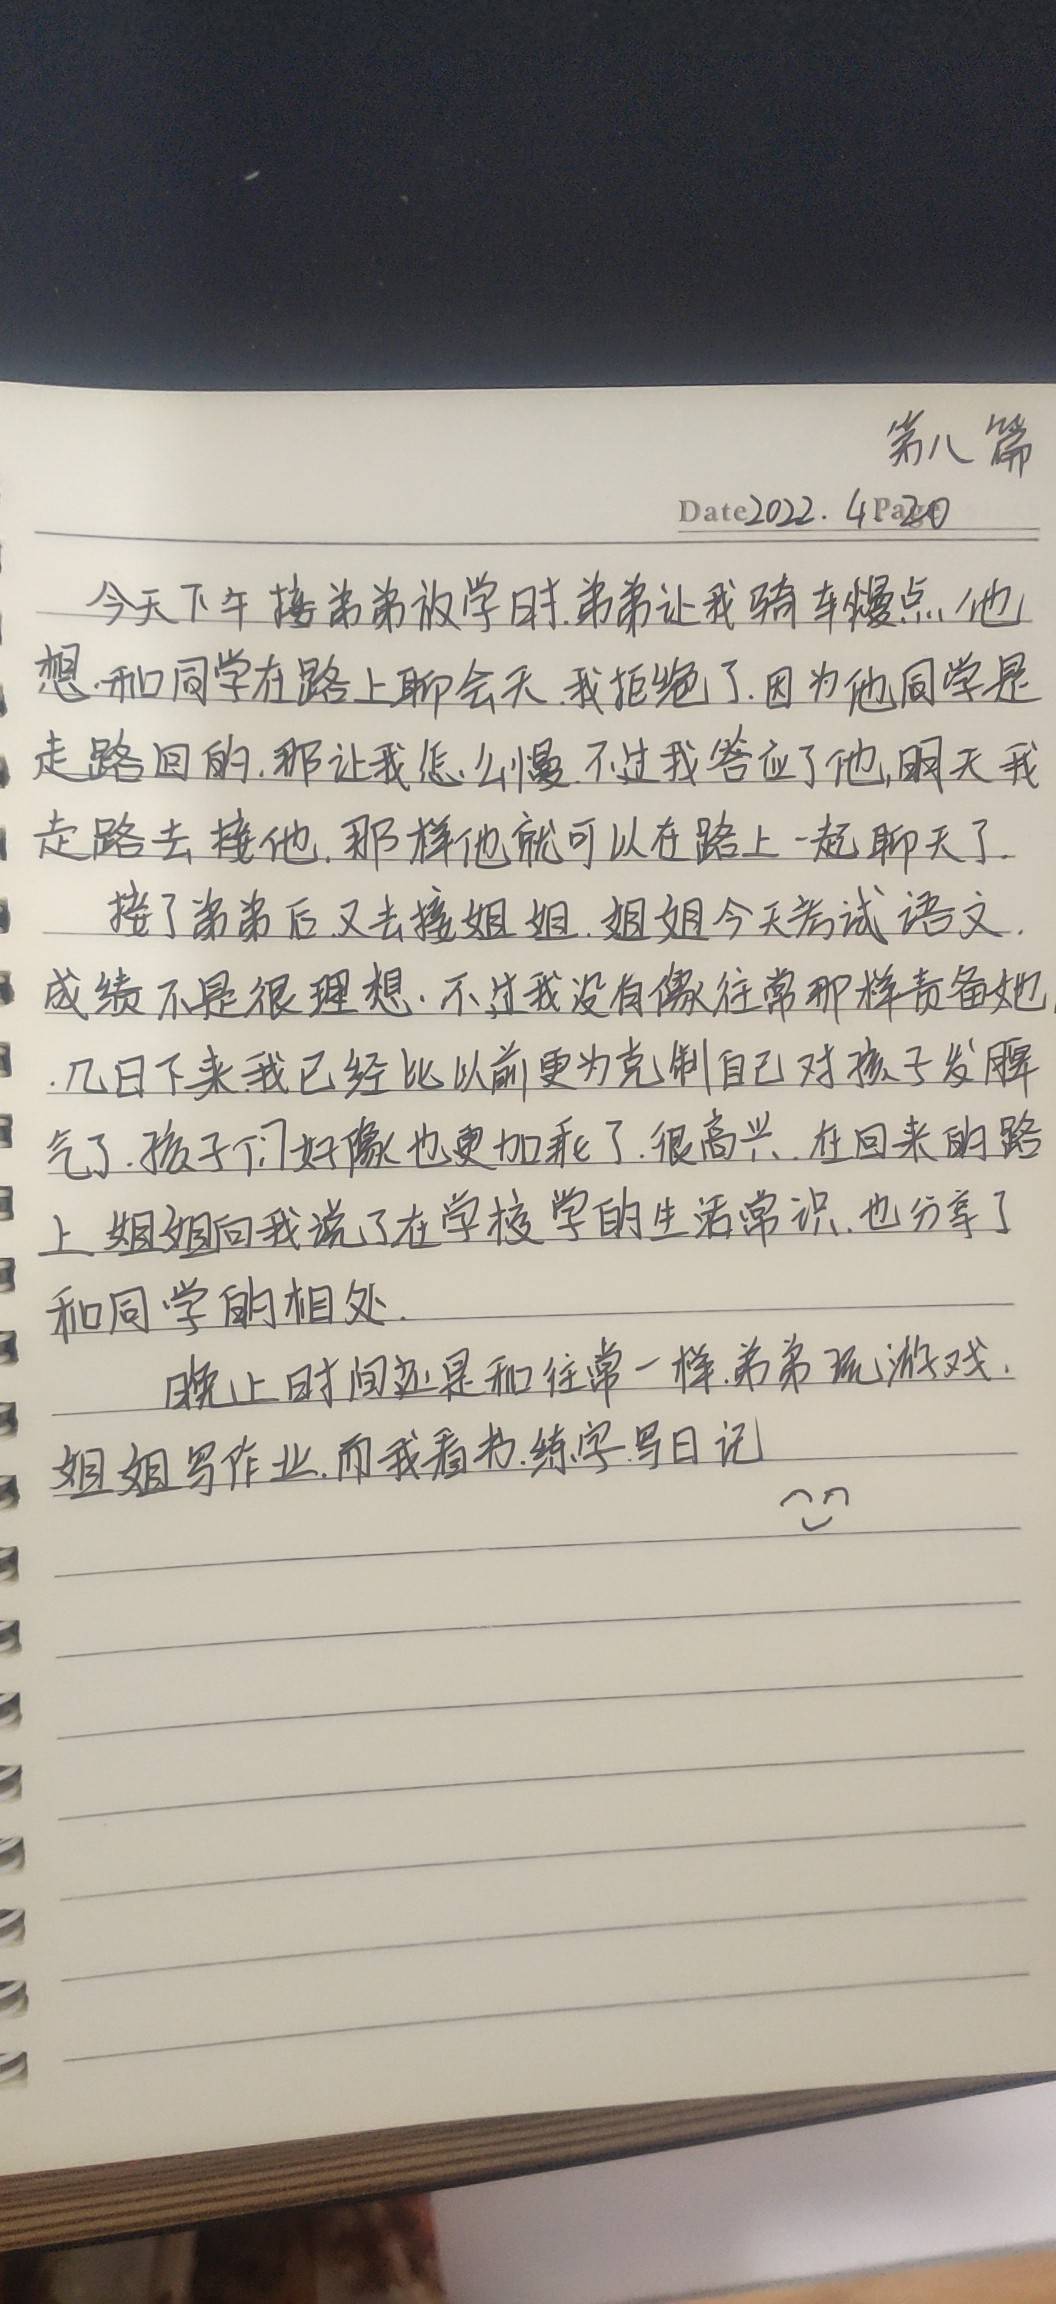 第八篇
Date 2022.4.20
今天下午接弟弟放学时.弟弟让我骑车慢点,他
想.和同学在路上聊会天.我拒绝了.因为他同学是
走路回的.那让我怎么慢.不过我答应了他,明天我
走路去接他.那样他就可以在路上一起聊天了.
接了弟弟后.又去接姐姐.姐姐今天考试语文.
成绩不是很理想.不过我没有像往常那样责备她,
.几日下来.我已经比以前更为克制自己对孩子发脾
气了.孩子们好像也更加乖了.很高兴.在回来的路
上姐姐向我说了在学校学的生活常识.也分享了
和同学的相处.
晚上时间还是和往常一样.弟弟玩游戏.
姐姐写作业.而我看书.练字.写日记